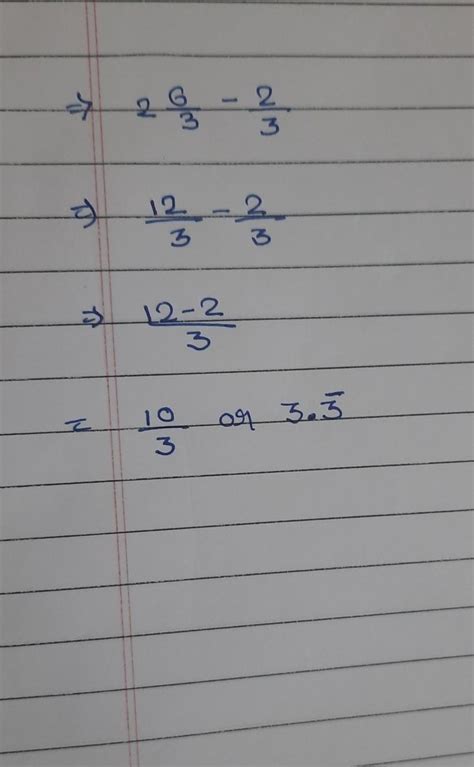 ⇒ 2 6/3 - 2/3
⇒ 12/3 - 2/3
⇒ 12-2/3
= 10/3 or 3.3̅